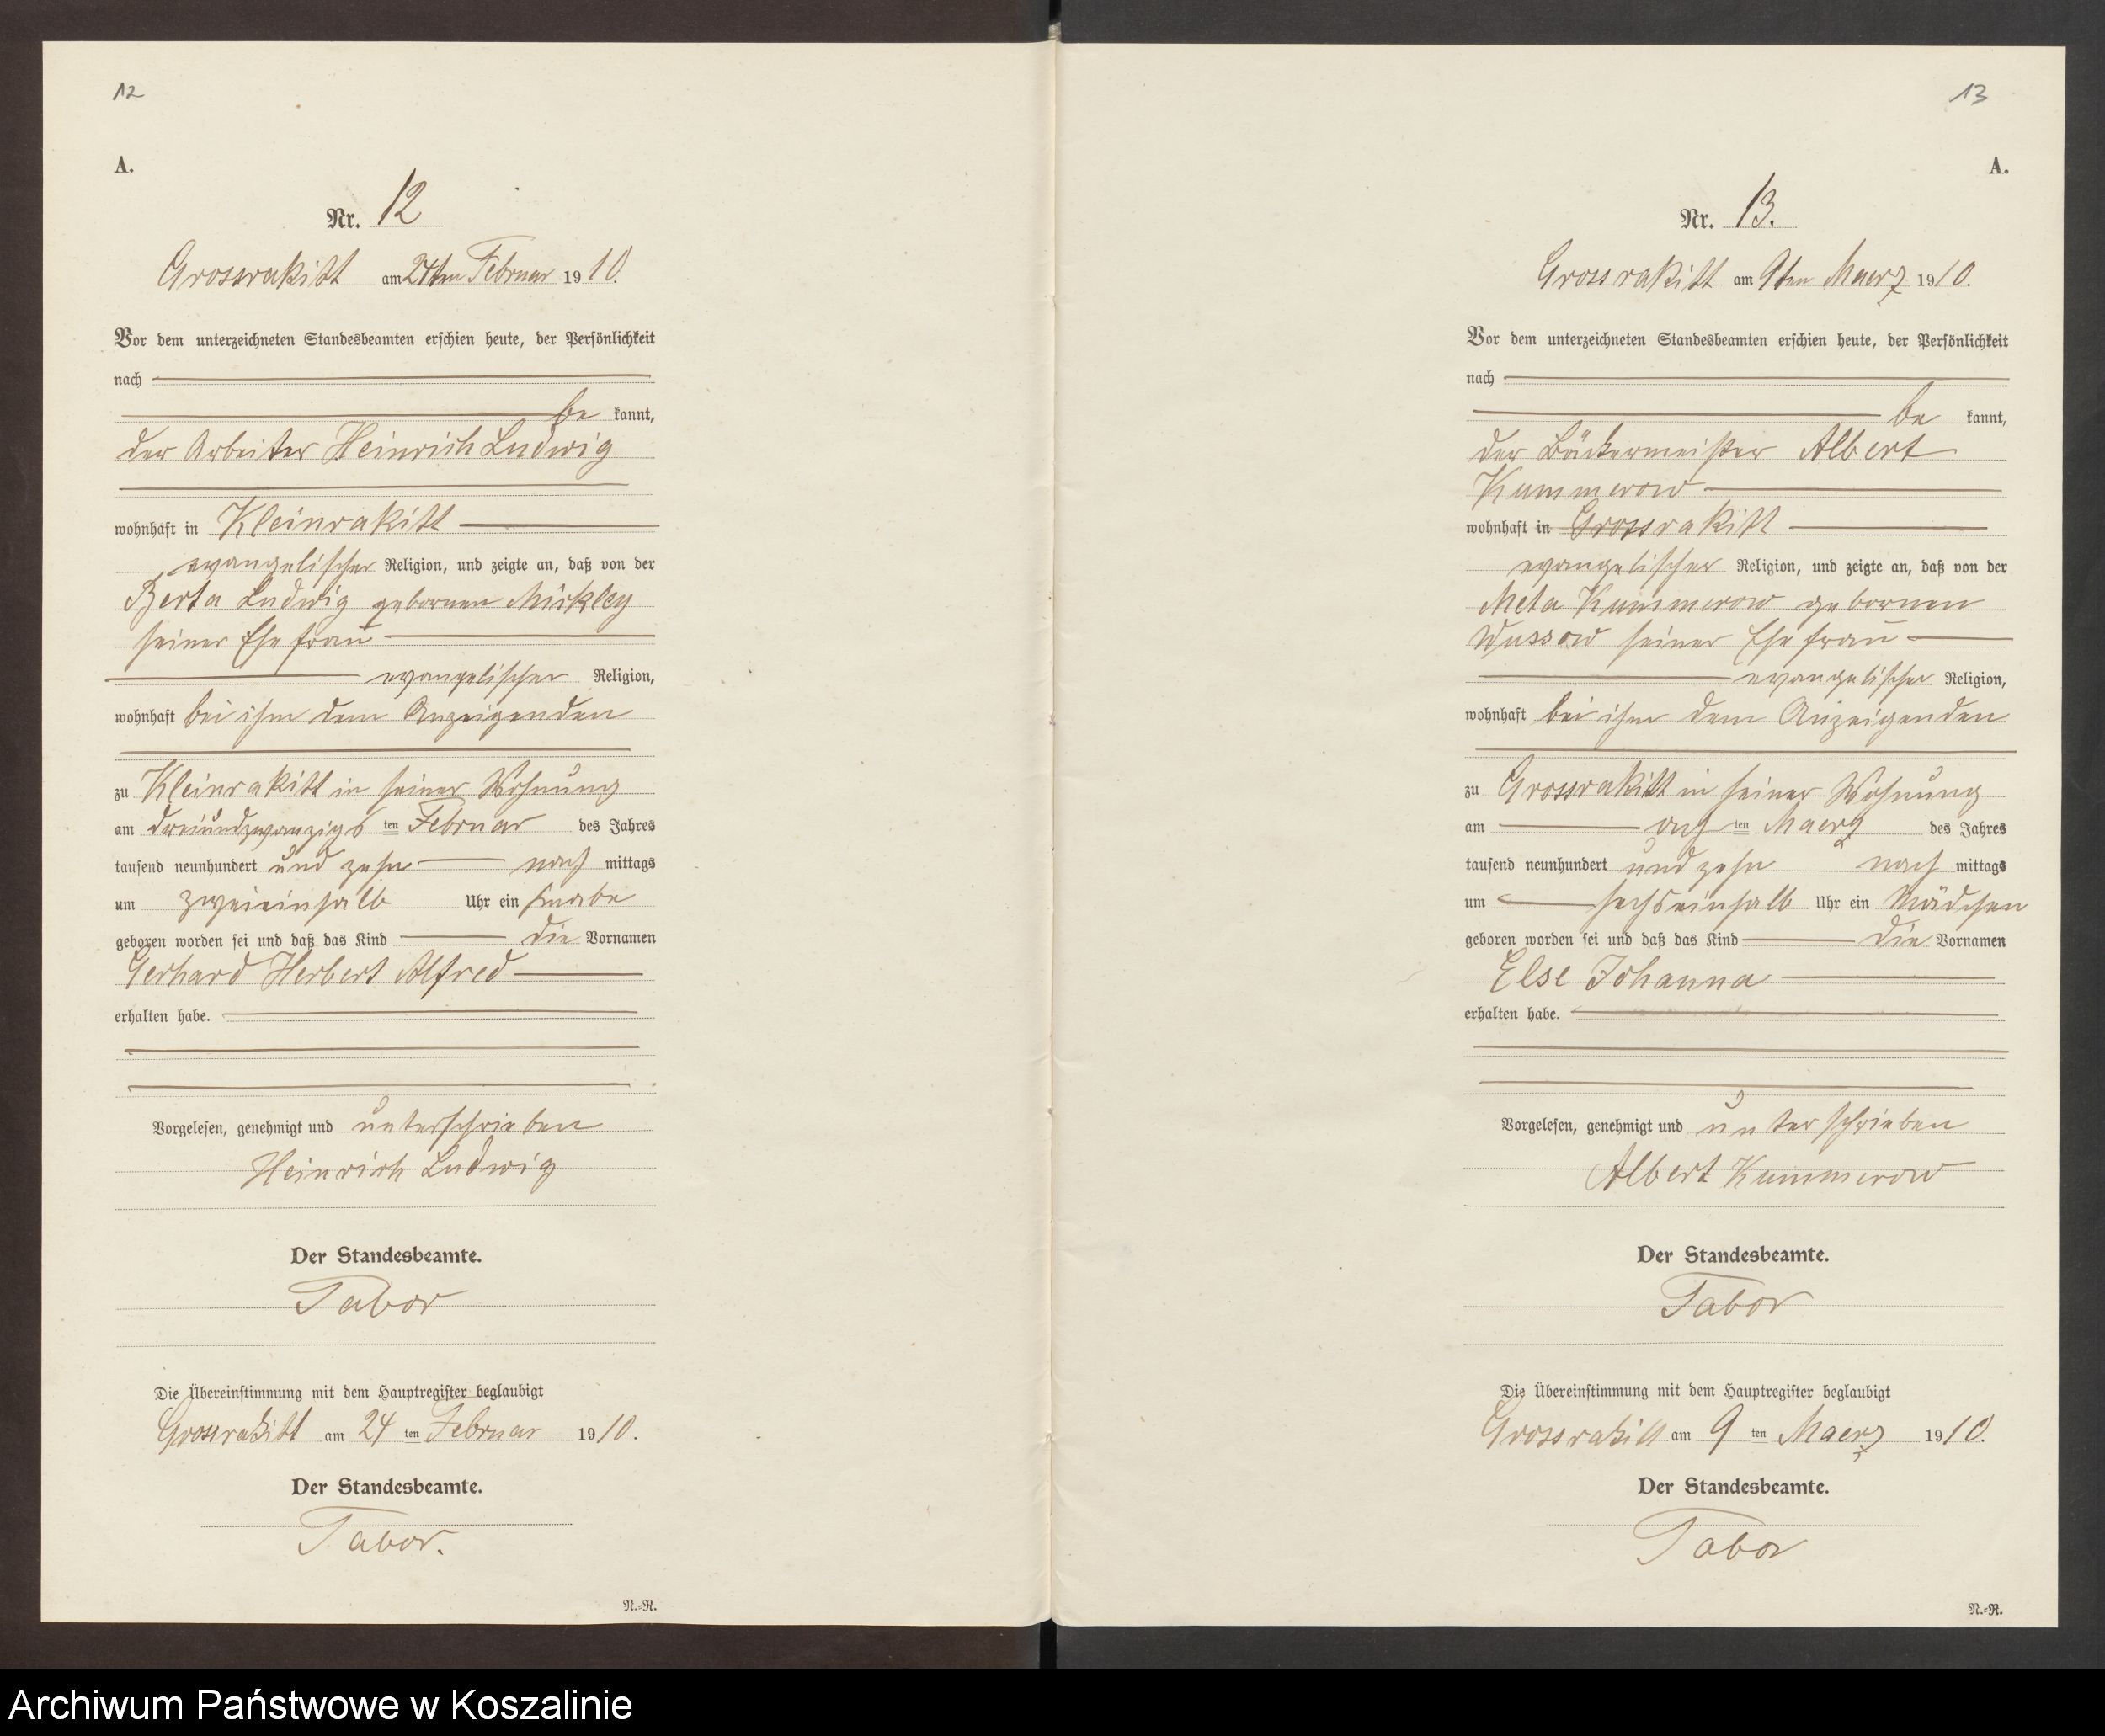 12
A.
Nr. 12
Grossrakitt am 24ten Februar 1910.
Vor dem unterzeichneten Standesbeamten erschien heute, der Persönlichkeit
nach
be kannt,
der Arbeiter Heinrich Ludwig
wohnhaft in Kleinrakitt
evangelischer Religion, und zeigte an, daß von der
Berta Ludwig gebornen Mickley
seiner Ehefrau
evangelischer Religion,
wohnhaft bei ihm dem Anzeigenden
zu Kleinrakitt in seiner Wohnung
am dreiundzwanzigs ten Februar des Jahres
tausend neunhundert und zehn nach mittags
um zweieinhalb Uhr ein Knabe
geboren worden sei und daß das Kind die Vornamen
Gerhard Herbert Alfred
erhalten habe.
Vorgelesen, genehmigt und unterschrieben
Heinrich Ludwig
Der Standesbeamte.
Tabor
Die Übereinstimmung mit dem Hauptregister beglaubigt
Grossrakitt am 24 ten Februar 1910.
Der Standesbeamte.
Tabor.
N.=R.
13
A.
Nr. 13.
Grossrakitt am 9ten Maerz 1910.
Vor dem unterzeichneten Standesbeamten erschien heute, der Persönlichkeit
nach
be kannt,
der Bäckermeister Albert
Kummerow
wohnhaft in Grossrakitt
evangelischer Religion, und zeigte an, daß von der
Meta Kummerow gebornen
Wussow seiner Ehefrau
evangelischer Religion,
wohnhaft bei ihm dem Anzeigenden
zu Grossrakitt in seiner Wohnung
am ach ten Maerz des Jahres
tausend neunhundert und zehn nach mittags
um sechseinhalb Uhr ein Mädchen
geboren worden sei und daß das Kind die Vornamen
Else Johanna
erhalten habe.
Vorgelesen, genehmigt und unterschrieben
Albert Kummerow
Der Standesbeamte.
Tabor
Die Übereinstimmung mit dem Hauptregister beglaubigt
Grossrakitt am 9 ten Maerz 1910.
Der Standesbeamte.
Tabor
N.=R.
Archiwum Państwowe w Koszalinie